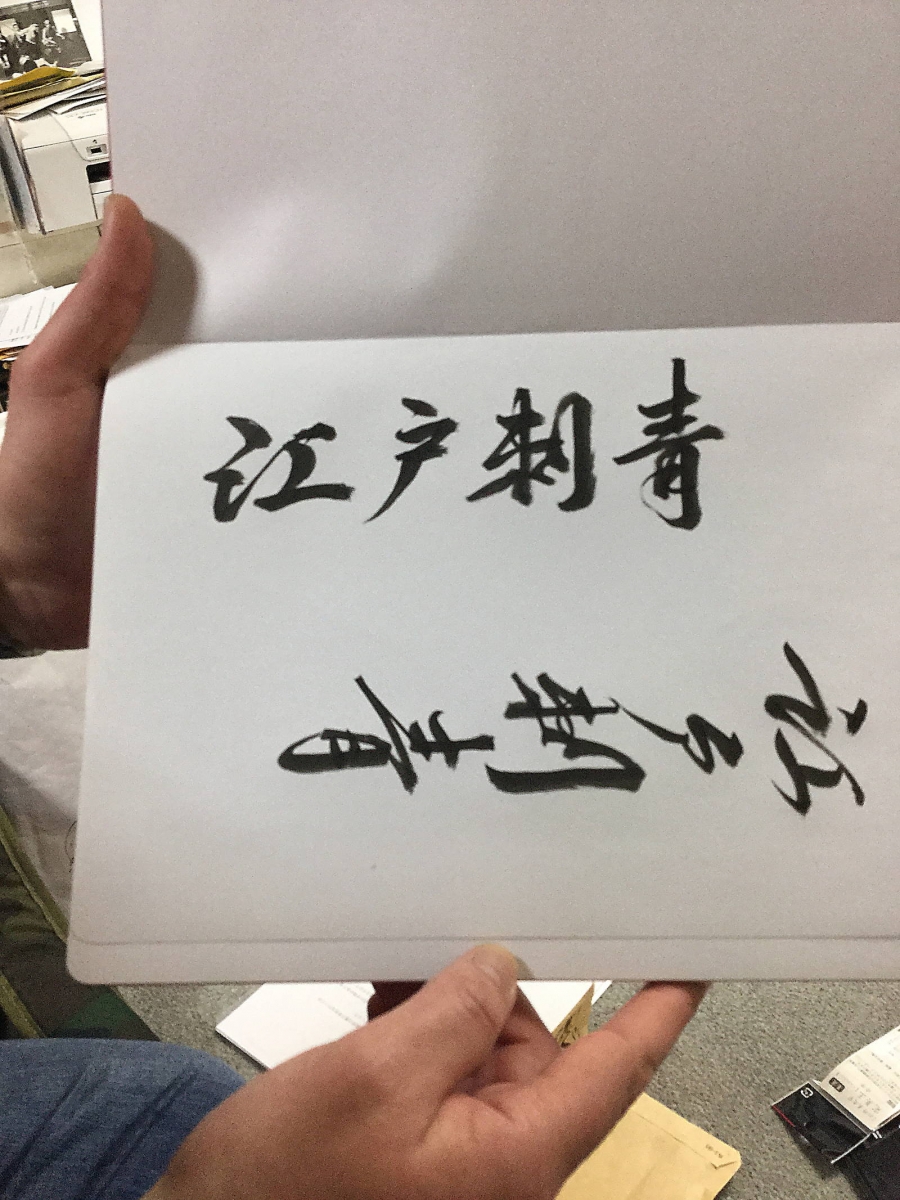 江戸刺青
江戸刺青